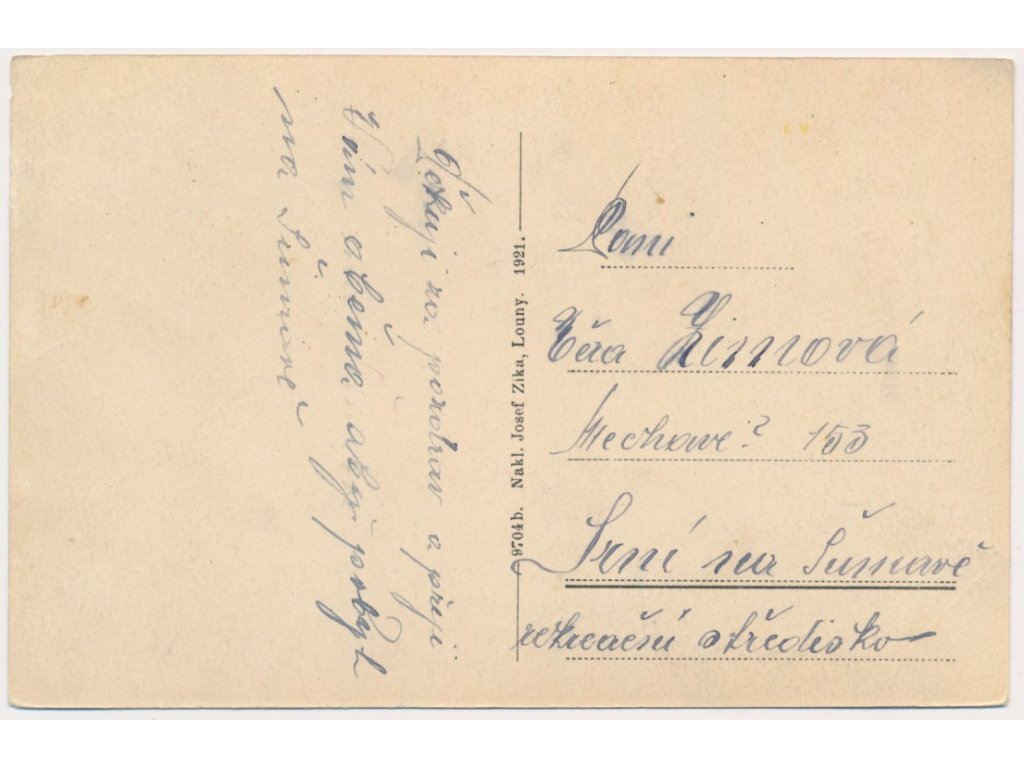 Děkuji za pozdrav a přeji
Vám všem, ať pobyt
na Šumavě
9704b. Nakl. Josef Zika, Louny. 1921.
Paní
Eva Zimová
Mechove? 153
Srní na Šumavě
rekreační středisko